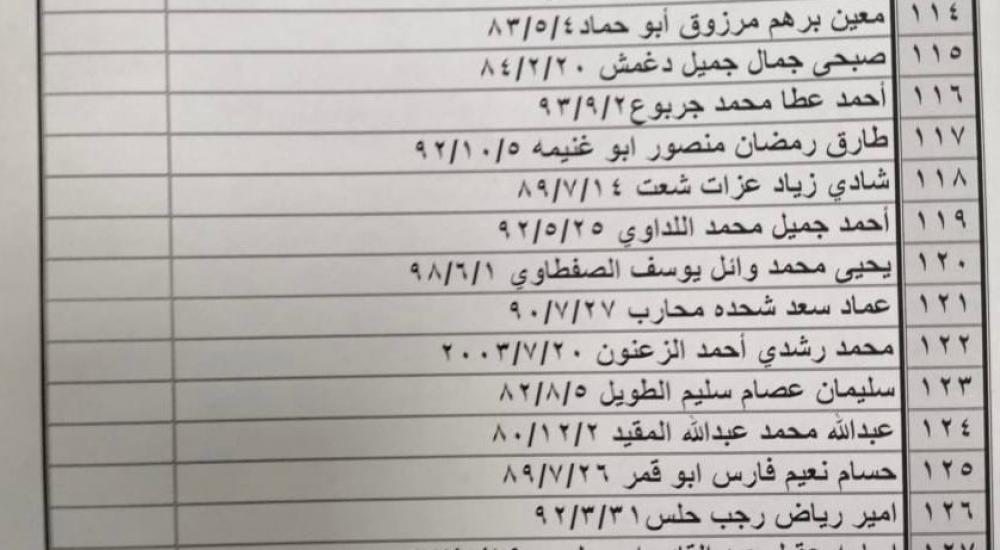 ١١٤ معين برهم مرزوق أبو حماد ٨٣/٥/٤
١١٥ صبحي جمال جميل دغمش ٨٤/٢/٢٠
١١٦ أحمد عطا محمد جربوع ٩٣/٩/٢
١١٧ طارق رمضان منصور ابو غنيمه ٩٢/١٠/٥
١١٨ شادي زياد عزات شعت ٨٩/٧/١٤
١١٩ أحمد جميل محمد اللداوي ٩٢/٥/٢٥
١٢٠ يحيى محمد وائل يوسف الصفطاوي ٩٨/٦/١
١٢١ عماد سعد شحده محارب ٩٠/٧/٢٧
١٢٢ محمد رشدي أحمد الزعنون ٢٠٠٣/٧/٢٠
١٢٣ سليمان عصام سليم الطويل ٨٢/٨/٥
١٢٤ عبدالله محمد عبدالله المقيد ٨٠/١٢/٢
١٢٥ حسام نعيم فارس ابو قمر ٨٩/٧/٢٦
١٢٦ امير رياض رجب حلس ٩٢/٣/٣١
١٢٧